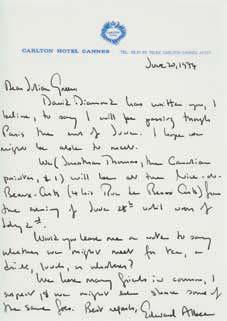 CARLTON HOTEL CANNES
June 20, 1994
Dear Julian Green,
David Diamond has written you, I
believe, to say I will be passing through
Paris the end of June. I hope we
might be able to meet.
We (Jonathan Thomas, the Canadian
painter, & I) will be at the
from
the evening of June 28th until noon of
July 2nd.
Would you leave me a note to say
whether we might meet for tea, a
drink, lunch, or whatever?
We have many friends in common, I
suspect we might even share some of
the same foes. Best regards, Edward Albee